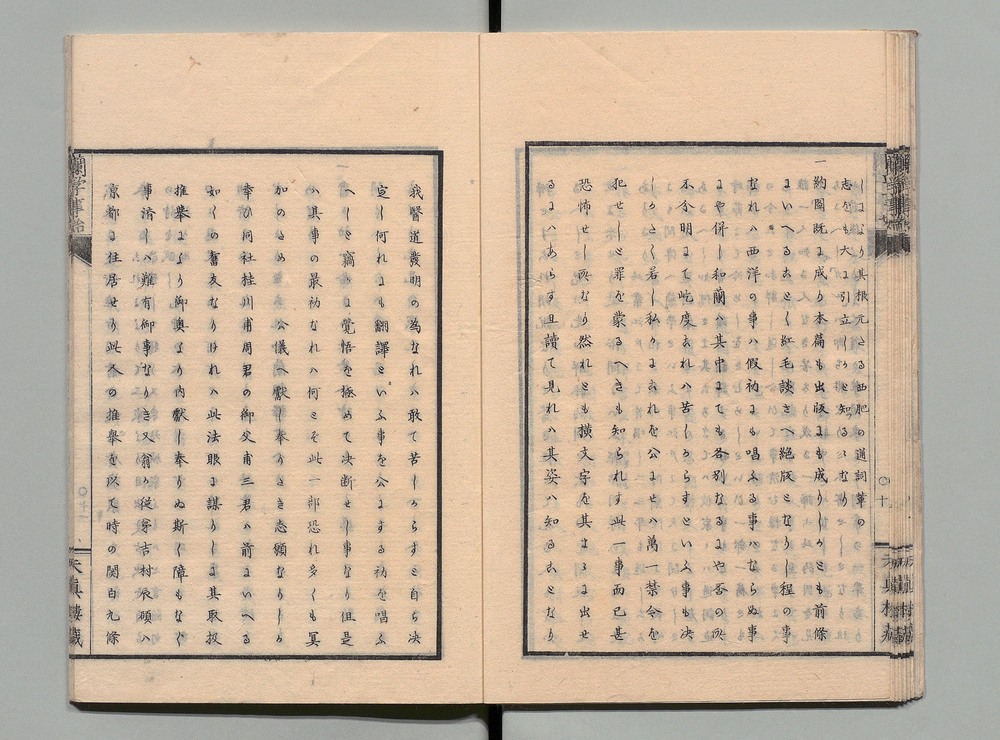 しよなり其根元とる西肥の通詞輩の
志をも大よ引立しめと知るゝむり
一豹圖既よ成り本篇も出版よも成りしかとも前條
よいへることく紅毛談さへ絶版となりし程の事
なれハ西洋の事ハ假初よも唱ふる事ハならぬ事
よや併し和蘭ハ其中よても各別なるよや否の所
不分明よて屹度これハ苦しからすといふ事も決
しかたく若し私かよこれを公よせハ萬一禁令を
犯せしと罪を蒙るへきも知られす此一事而已甚
恐怖せし所なり然れとも横文字を其まゝよ出せ
るよハあらす且讀て見れハ其姿ハ知ることなり
我醫道發明の為なれハ敢て苦しからすと自ら决
定し何れよも翻譯といふ事を公よする初を唱ふ
へしと竊よ覺悟を極めて决断せし事なり但是
ハ其事の最初なれハ何とそ此一部恐れ多くも冥
加のため公儀へ獻し奉りたき志願なりしか
幸ひ同社桂川甫周君の御父甫三君ハ前よいへる
如くの舊友なりけれハ此法眼よ謀りしよ其取扱
推舉よより御奧より内獻し奉りぬ斯く障もなく
事濟しハ難有御事なりき又翁の従弟吉村辰碩ハ
京都よ住居せり此人の推舉を以て時の関白九條
蘭學事始
〇十
〇十一
天真樓藏